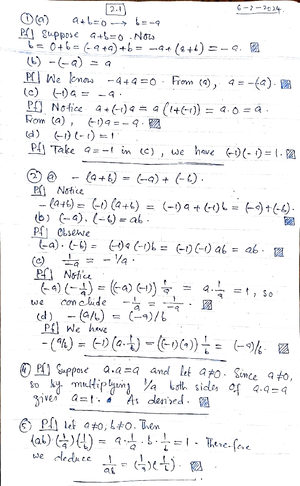 2.1
6-2-2024.
① (a) a+b=0 → b=-a
Pf] Suppose a+b=0. Now
b = 0+b = (-a+a)+b = -a+(a+b) = -a.
(b) -(-a) = a
Pf] We know -a+a=0. From (a), a = -(-a).
(c) (-1)a = -a.
Pf] Notice a+(-1)a = a(1+(-1)) = a.0 = 0.
From (a), (-1)a = -a.
(d) (-1)(-1) = 1
Pf] Take a=-1 in (c), we have (-1)(-1)=1.
② a -(a+b) = (-a)+(-b).
Pf] Notice
-(a+b) = (-1)(a+b) = (-1)a+(-1)b = (-a)+(-b).
(b) (-a).(-b) = ab.
Pf] Observe
(-a).(-b) = (-1)a (-1)b = (-1)(-1) ab = ab.
(c) 1/-a = -1/a.
Pf] Notice
(-a)(-1/a) = ((-a)(-1)) 1/a = a.1/a = 1, so
we conclude -1/a = 1/-a.
(d) -(a/b) = (-a)/b
Pf] We have
-(a/b) = (-1)(a.1/b) = ((-1)(a)) 1/b = (-a)/b.
④ Pf] Suppose a.a=a and let a≠0. Since a≠0,
so by multiplying 1/a both sides of a.a=a
gives a=1. As desired.
⑤ Pf] Let a≠0, b≠0. Then
(ab)(1/a)(1/b) = a.1/a.b.1/b = 1. Therefore
we deduce 1/ab = (1/a)(1/b).